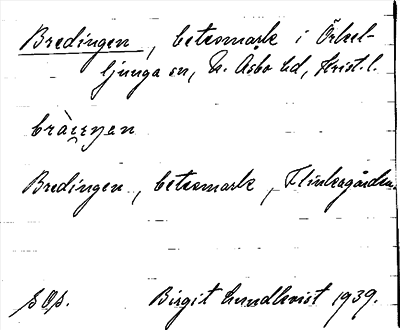 Bredingen, betesmark i Örkel-
ljunga sn, N. Åsbo hd, Krist. l.
Bredingen, betesmark, Flinkagården.
Birgit Lundkvist 1939.